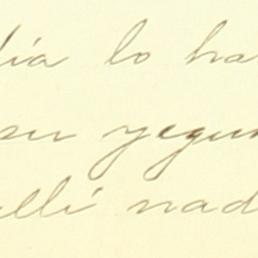 día lo ha
su yegu
allí nad